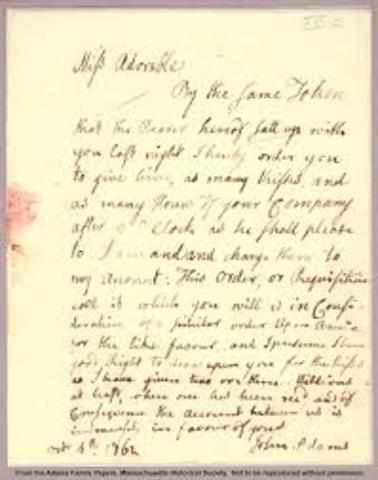 Miss Adorable
By the same Token
that the Bearer hereof satt up with
you last night I hereby order you
to give him, as many Kisses, and
as many Hours of your Company
after 9 o Clock as he shall please
to Demand and charge them to
my Account: This Order, or Requisition
call it which you will is in Consi-
deration of a similar order Upon Aurelia
for the like favour, and I presume I have
good Right to draw upon you for the Kisses
as I have given two or three Millions
at least, when one has been recd and of
Consequence the Account between us is
immensely in favour of yours
John Adams
Octr 4th 1762
From the Adams Family Papers, Massachusetts Historical Society. Not to be reproduced without permission.